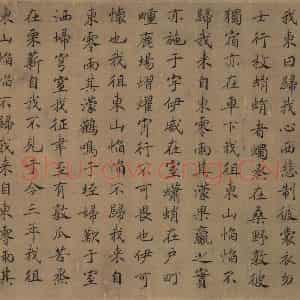 我東曰歸我心西悲制彼裳衣勿
士行枚蜎蜎者蠋烝在桑野敦彼
獨宿亦在車下我徂東山慆慆不
歸我来自東零雨其濛果臝之實
亦施于宇伊威在室蠨蛸在戶町
畽鹿場熠燿宵行不可畏也伊可
懷也我徂東山慆慆不歸我来自
東零雨其濛鸛鳴于垤婦歎于室
洒埽穹窒我征聿至有敦瓜苦烝
在栗薪自我不見于今三年我徂
東山慆慆不歸我来自東零雨其